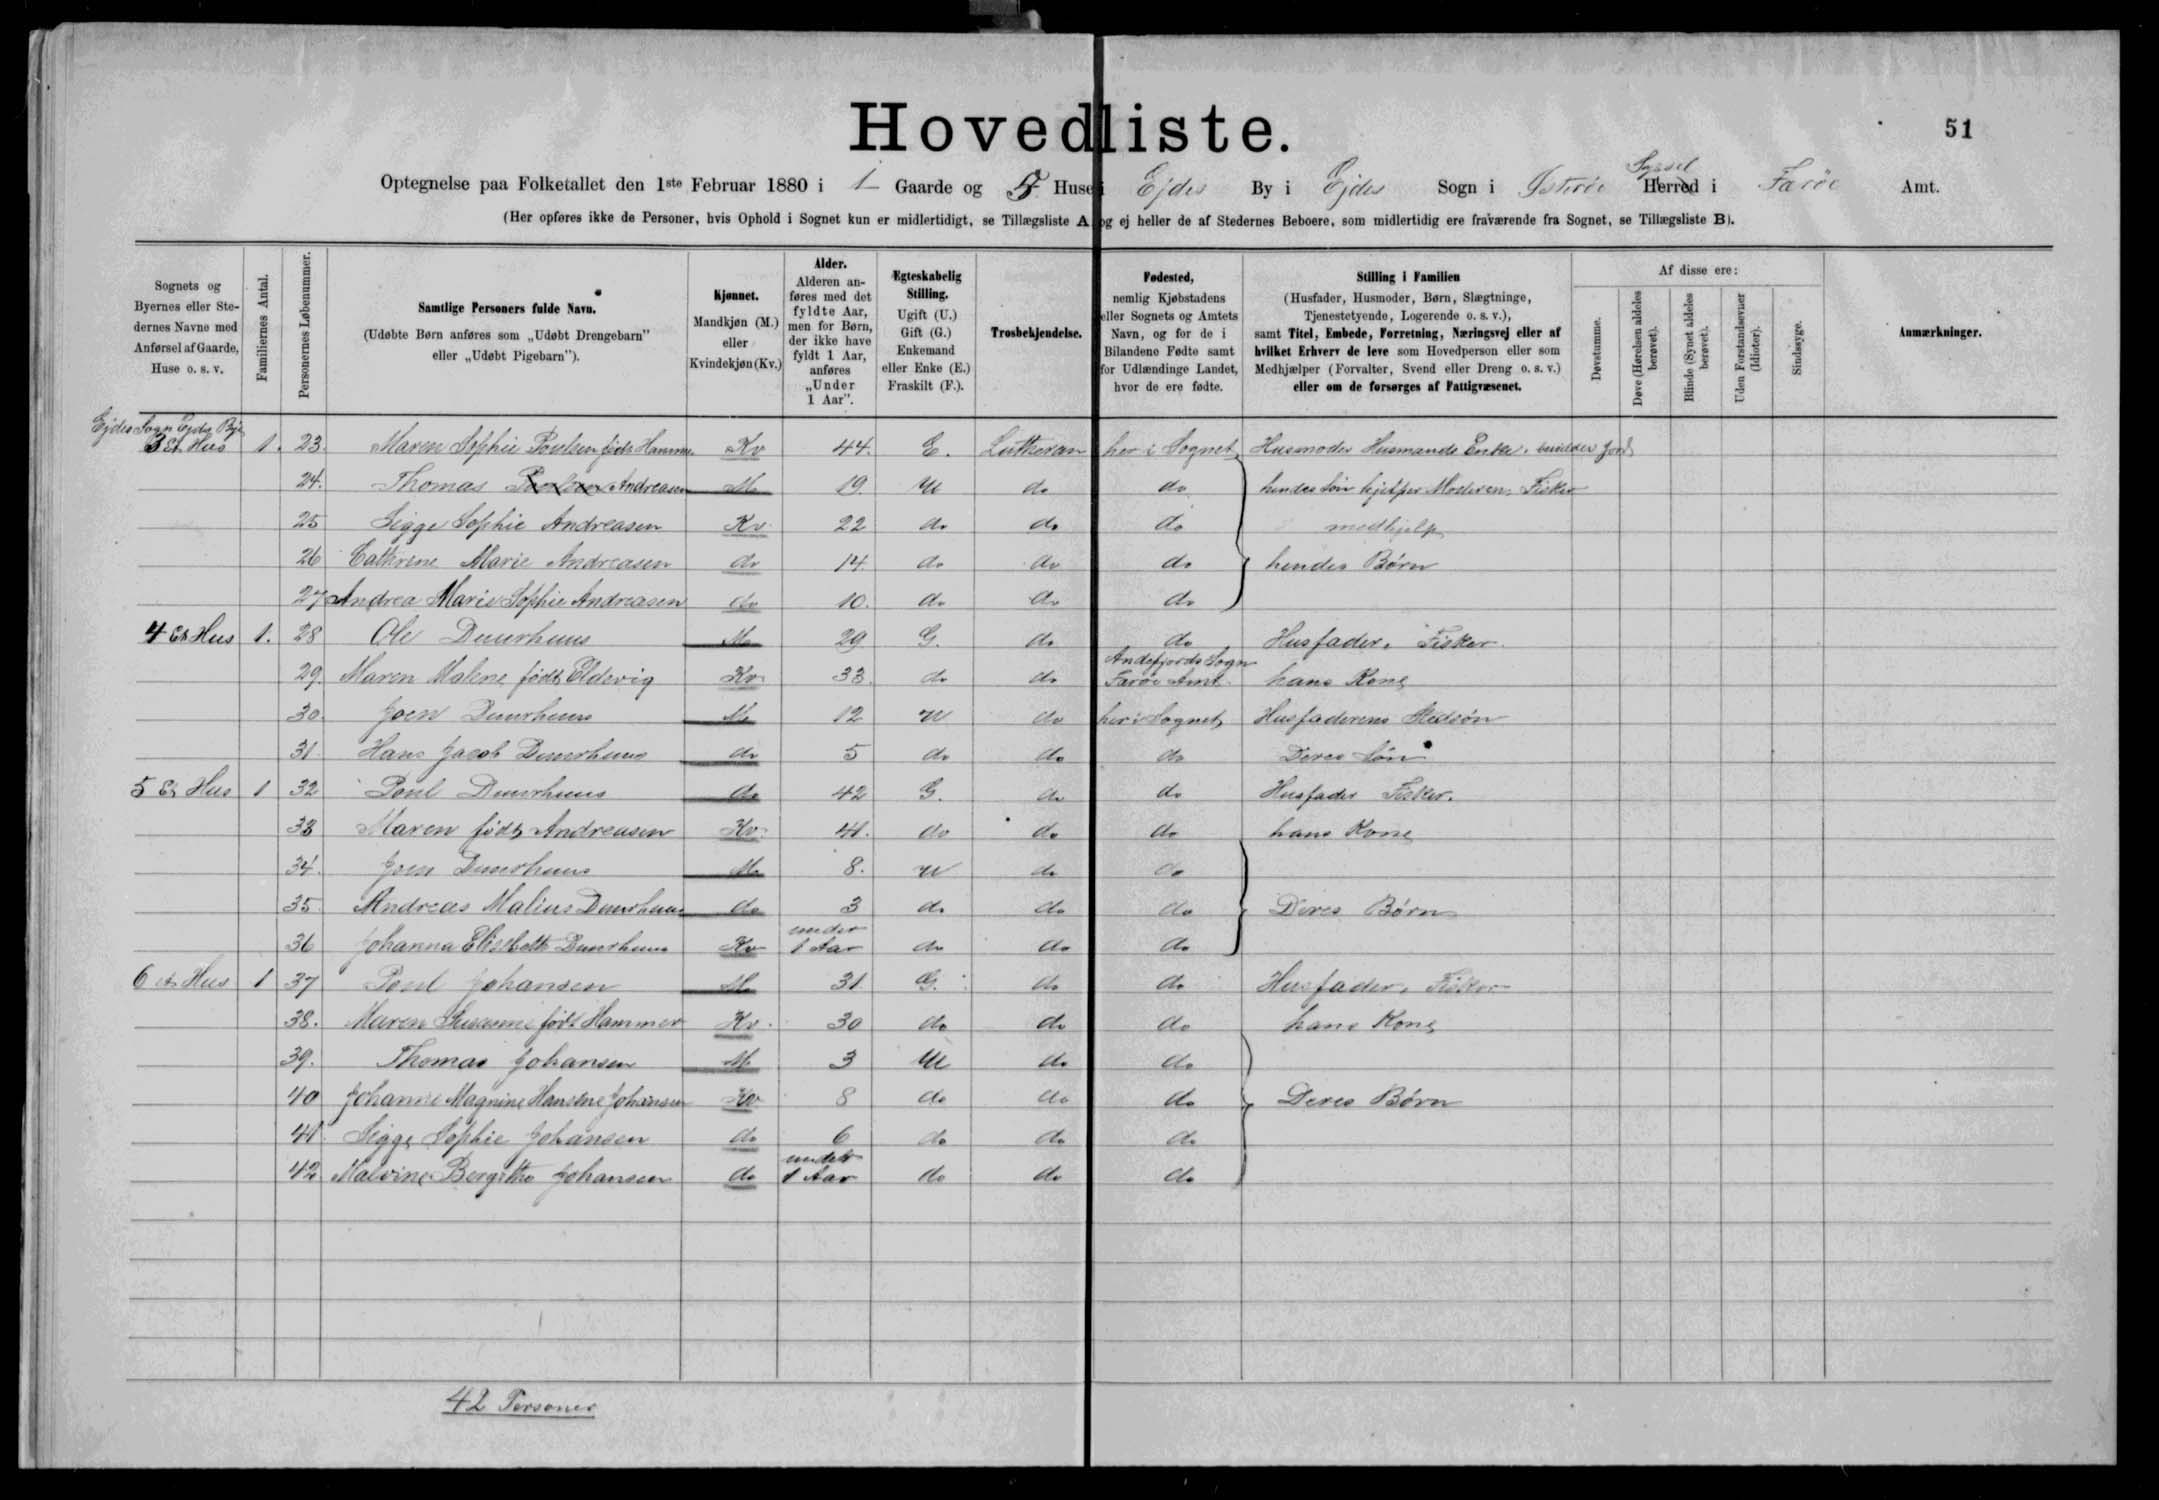 51
Hovedliste.
Optegnelse paa Folketallet den 1ste Februar 1880 i 1 Gaarde og 5 Huse i Ejdes By i Ejdes Sogn i Østerøe Syssel Herred i Farøe Amt.
(Her opføres ikke de Personer, hvis Ophold i Sognet kun er midlertidigt, se Tillægsliste A og ej heller de af Stedernes Beboere, som midlertidig ere fraværende fra Sognet, se Tillægsliste B).
Sognets og Byernes eller Stedernes Navne med Anførsel af Gaarde, Huse o. s. v.
Familiernes Antal.
Personernes Løbenummer.
Samtlige Personers fulde Navn.
(Udøbte Børn anføres som „Udøbt Drengebarn” eller „Udøbt Pigebarn”).
Kjønnet.
Mandkjøn (M.) eller Kvindekjøn (Kv.)
Alder.
Alderen anføres med det fyldte Aar, men for Børn, der ikke have fyldt 1 Aar, anføres „Under 1 Aar”.
Ægteskabelig Stilling.
Ugift (U.) Gift (G.) Enkemand eller Enke (E.) Fraskilt (F.).
Trosbekjendelse.
Fødested,
nemlig Kjøbstadens eller Sognets og Amtets Navn, og for de i Bilandene Fødte samt for Udlændinge Landet, hvor de ere fødte.
Stilling i Familien
(Husfader, Husmoder, Børn, Slægtninge, Tjenestetyende, Logerende o. s. v.),
samt Titel, Embede, Forretning, Næringsvej eller af hvilket Erhverv de leve som Hovedperson eller som Medhjælper (Forvalter, Svend eller Dreng o. s. v.) eller om de forsørges af Fattigvæsenet.
Af disse ere:
Døvstumme.
Døve (Hørelsen aldeles berøvet).
Blinde (Synet aldeles berøvet).
Uden Forstandsevner (Idioter).
Sindssyge.
Anmærkninger.
Ejdes Sogn Ejdes By
3 Et Hus 1. 23. Maren Sophie Poulsen født Hammer Kv 44. E. Lutheran her i Sognet Husmoder Husmands Enke. Jord
24. Thomas Poulsen Andreasen M 19. U do do hendes Søn hjelper Moderen. Fisker
25 Sigge Sophie Andreasen Kv. 22 do do do medhjelp
26 Cathrine Marie Andreasen do 14. do do do hendes Børn
27 Andrea Marie Sophie Andreasen do 10. do do do
4 Et Hus 1. 28 Ole Duurhuus M 29 G. do do Husfader. Fisker.
29. Maren Malene født Eldevig Kv. 33. do do Andefjords Sogn Farøe Amt. hans Kone
30. Joen Duurhuus M 12 U do her i Sognet Husfaderens Stedsøn
31. Hans Jacob Duurhuus do 5 do do do Deres Søn
5 Et Hus 1 32 Poul Duurhuus do 42 G. do do Husfader Fisker.
33 Maren født Andreasen Kv. 41. do do do hans Kone
34. Joen Duurhuus M 8. U do do
35. Andreas Malius Duurhuus do 3 do do do Deres Børn
36 Johanna Elisebeth Duurhuus Kv under 1 Aar do do do
6 Et Hus 1 37 Poul Johansen M 31 G. do do Husfader. Fisker
38. Maren Susanne født Hammer Kv. 30 do do do hans Kone
39. Thomas Johansen M 3 U do do
40 Johanne Magnine Hansine Johansen Kv 8 do do do Deres Børn
41. Sigge Sophie Johansen do 6 do do do
42 Malvine Bergitha Johansen do under 1 Aar do do do
42 Personer